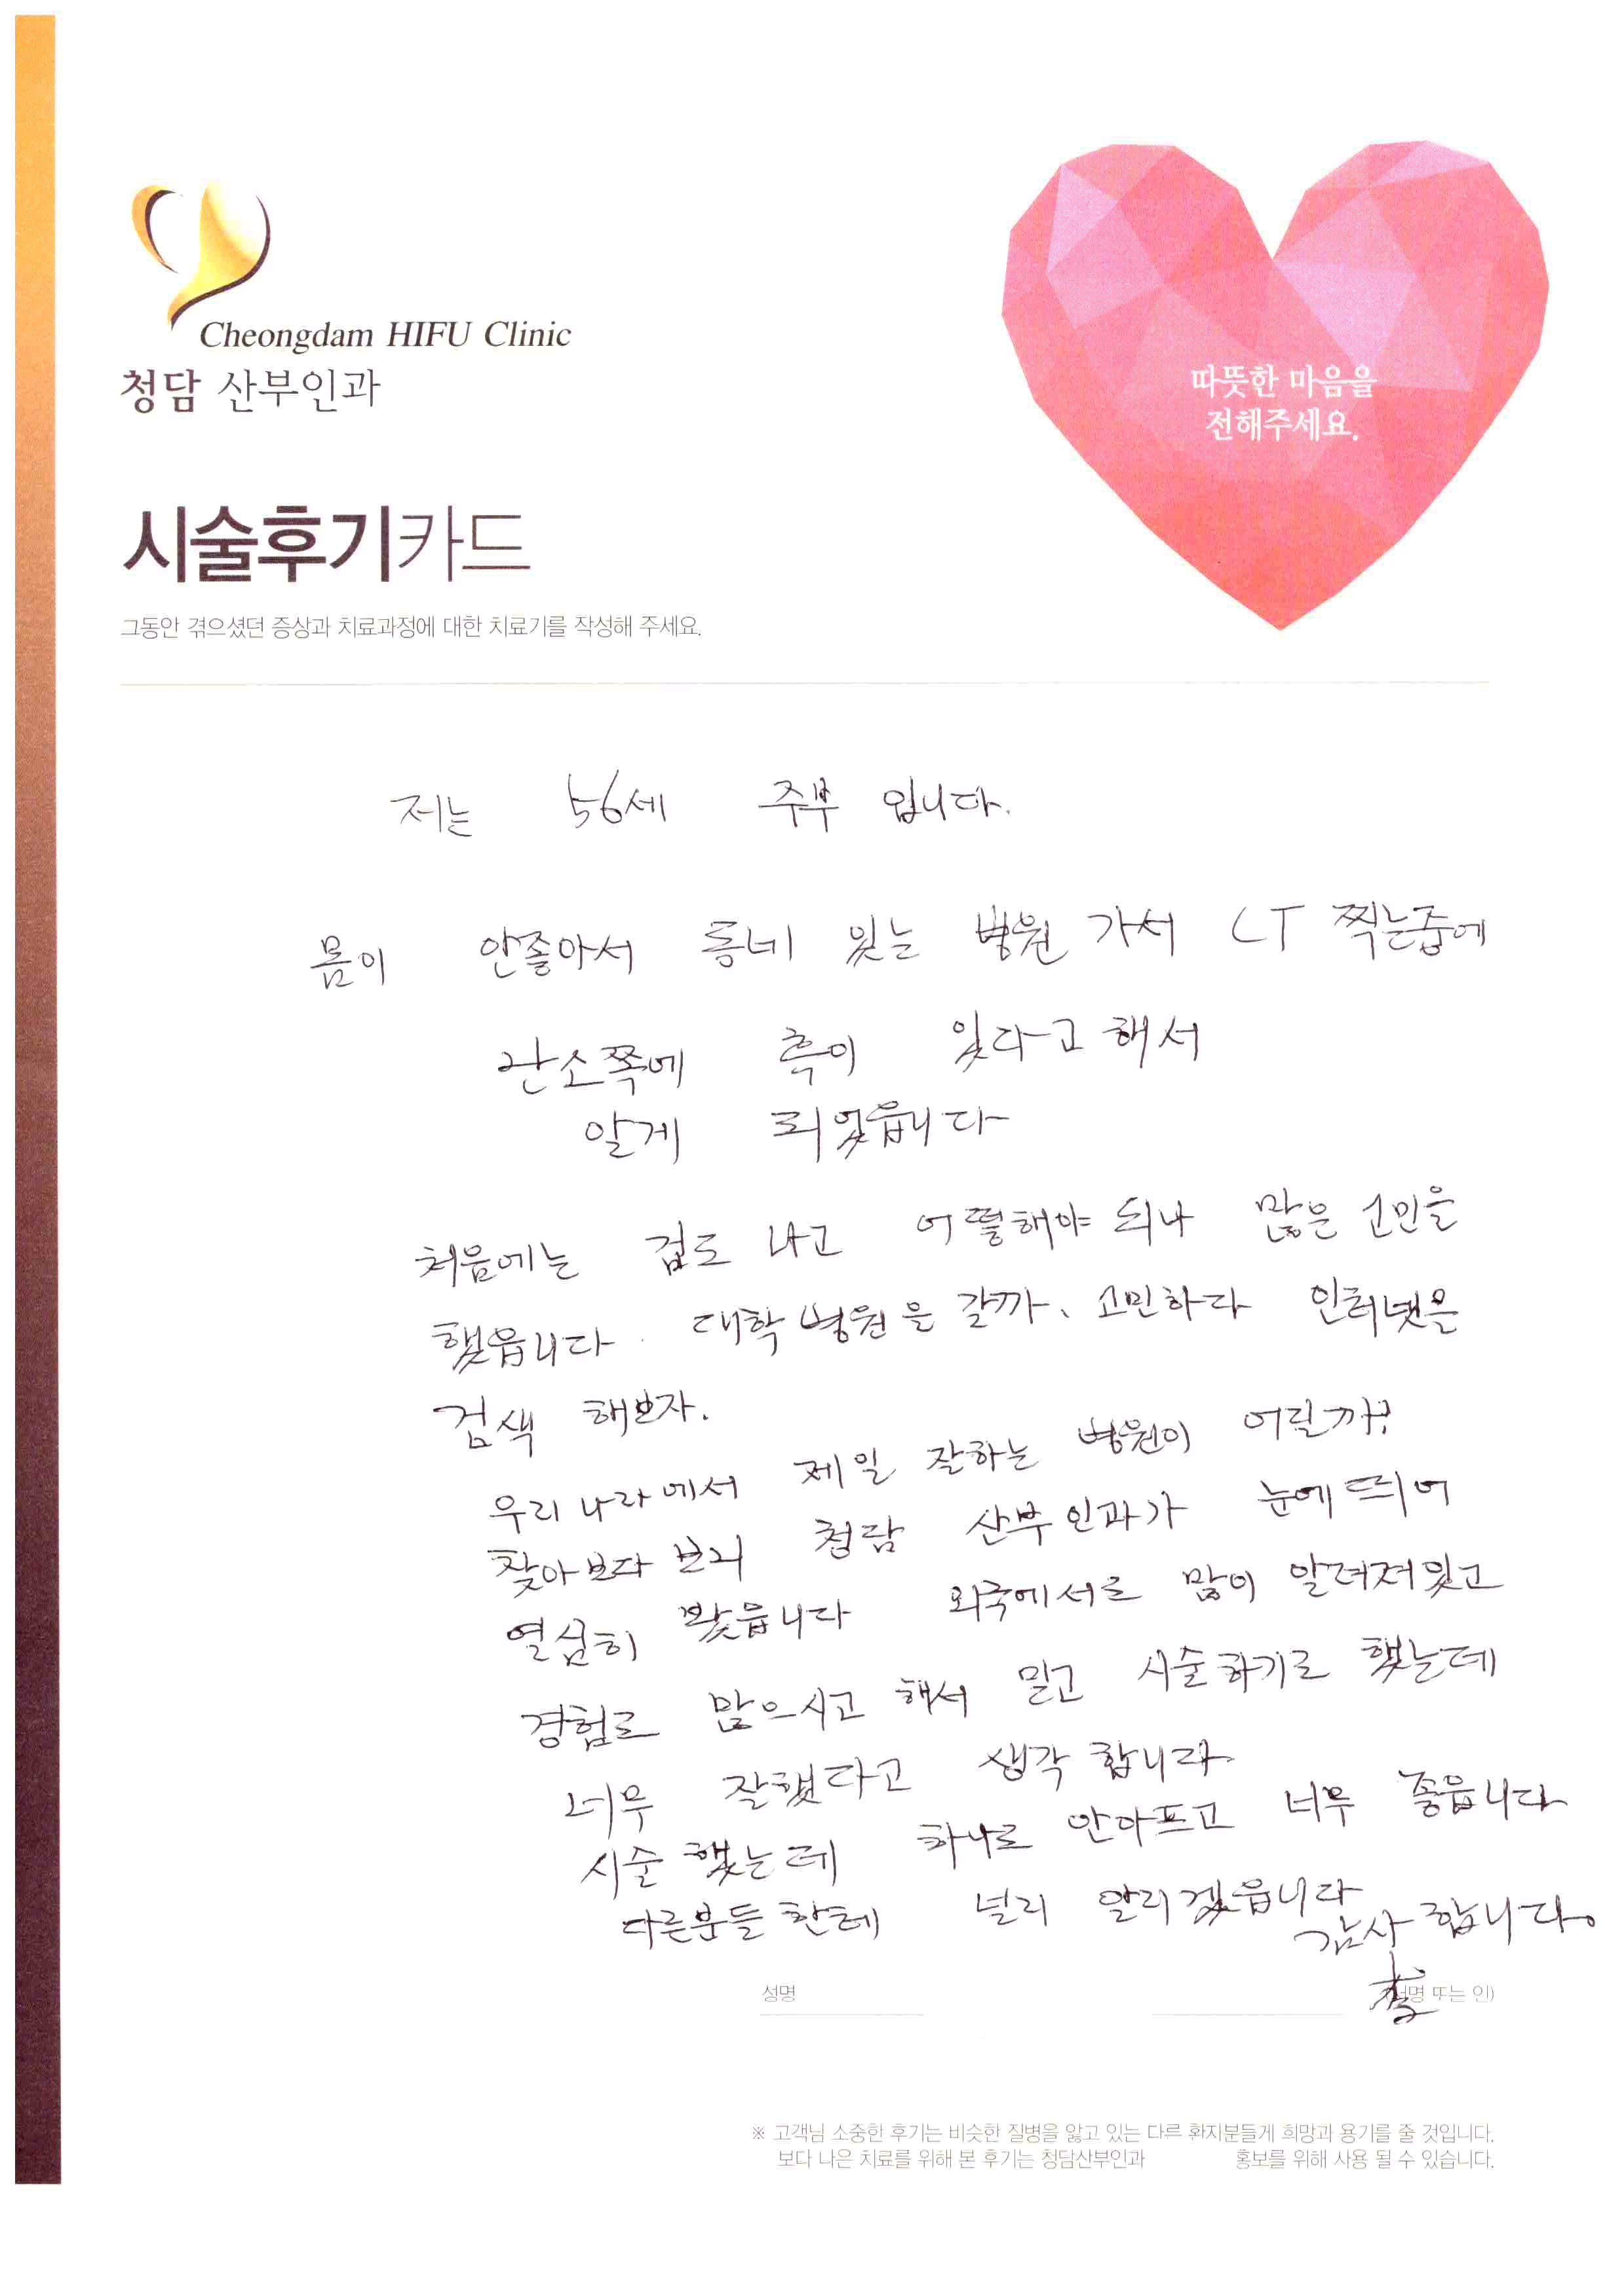 Cheongdam HIFU Clinic
청담 산부인과
따뜻한 마음을
전해주세요.
시술후기카드
그동안 겪으셨던 증상과 치료과정에 대한 치료기를 작성해 주세요.
저는 56세 주부 입니다.
몸이 안좋아서 동네 있는 병원 가서 CT 찍는중에
난소쪽에 혹이 있다고 해서
알게 되었읍니다
처음에는 겁도 나고 어떻해야 되나 많은 고민을
했읍니다. 대학병원을 갈까, 고민하다 인터넷을
검색 해보자.
우리나라에서 제일 잘하는 병원이 어딜까?
찾아보다 보니 청담 산부인과가 눈에 띄어
열심히 봤읍니다 외국에서도 많이 알려져있고
경험도 많으시고 해서 믿고 시술하기로 했는데
너무 잘했다고 생각 합니다.
시술 했는데 하나도 안아프고 너무 좋읍니다
다른분들 한테 널리 알리겠읍니다
감사 합니다.
성명 서명 또는 인)
※ 고객님 소중한 후기는 비슷한 질병을 앓고 있는 다르 환자분들게 희망과 용기를 줄 것입니다.
보다 나은 치료를 위해 본 후기는 청담산부인과 홍보를 위해 사용 될 수 있습니다.